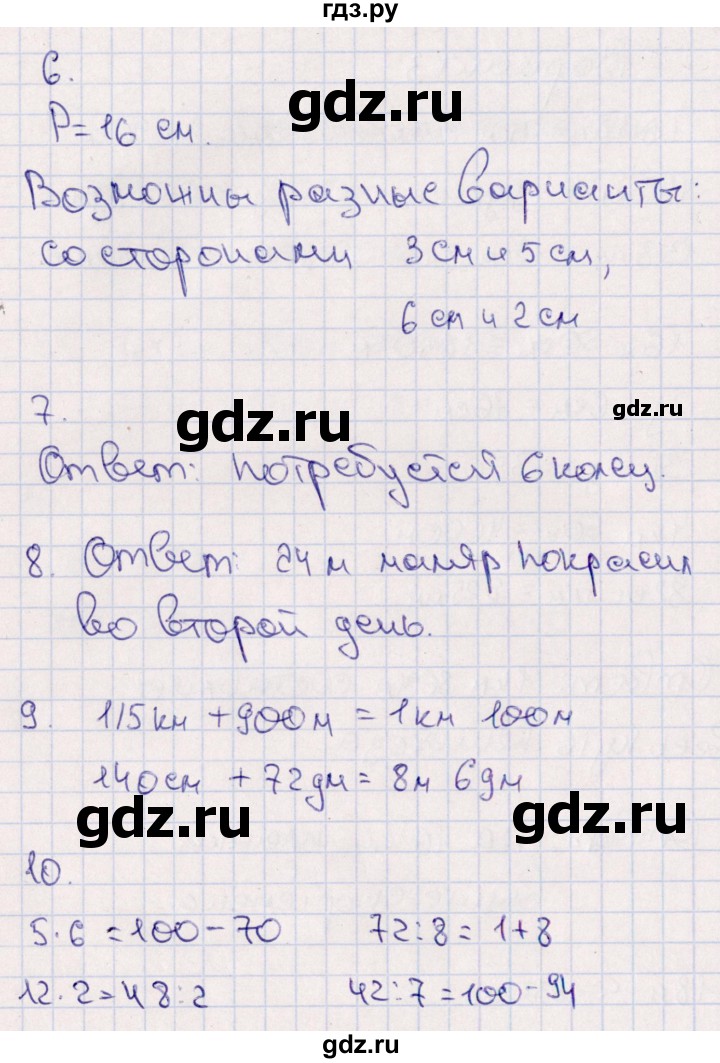 гдз.ру
6.
gdz.ru
P=16 см.
Возможны разные варианты:
со сторонами 3 см и 5 см,
6 см и 2 см
7.
gdz.ru
gdz.ru
Ответ: потребуется 6 колец.
8. Ответ: 24 м маляр покрасил
во второй день.
9. 1/5 км + 900 м = 1 км 100 м
140 см + 72 дм = 8 м 6 дм
gdz.ru
gdz.ru
10.
5·6=100-70 72:8=1+8
12·2=48:2 42:7=100-94
gdz.ru